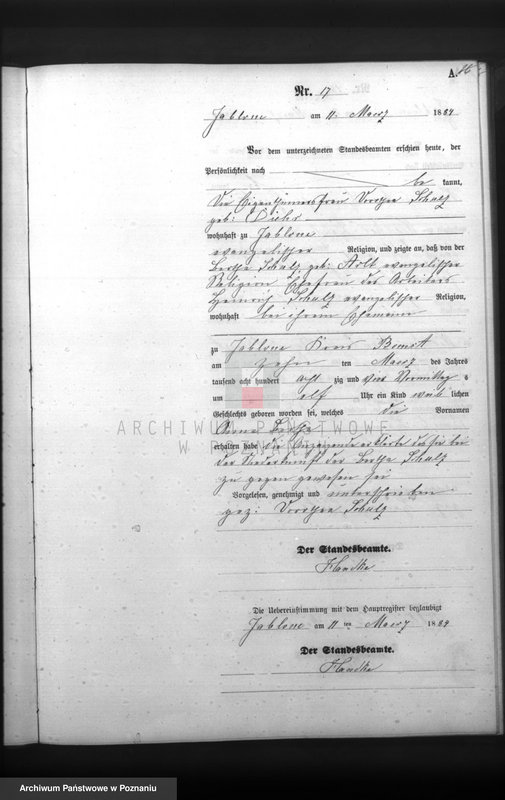 A.
Nr. 17
Jablone am 11. Maerz 1884
Vor dem unterzeichneten Standesbeamten erschien heute, der
Persönlichkeit nach
be kannt,
die Eigenthümersfrau Dorothea Schulz
geb:
wohnhaft zu Jablone
evangelischer Religion, und zeigte an, daß von der
Bertha Schulz geb: Arlt, evangelischer
Religion Ehefrau des Arbeiters
Heinrich Schulz evangelischer Religion,
wohnhaft bei ihrem Ehemann
zu Jablone Kreis Bomst
am zehn ten Maerz des Jahres
tausend acht hundert acht zig und vier Vormittag s
um elf Uhr ein Kind weib lichen
Geschlechts geboren worden sei, welches die Vornamen
Anna Bertha
erhalten habe die Anzeigende erklärte daß sie bei
der Niederkunft der Bertha Schulz
zu gegen gewesen sei
Vorgelesen, genehmigt und unterschrieben
gez: Dorothea Schulz
Der Standesbeamte.
Die Uebereinstimmung mit dem Hauptregister beglaubigt
Jablone am 11 ten Maerz 1884
Der Standesbeamte.
ARCHIWUM PAŃSTWOWE
Archiwum Państwowe w Poznaniu